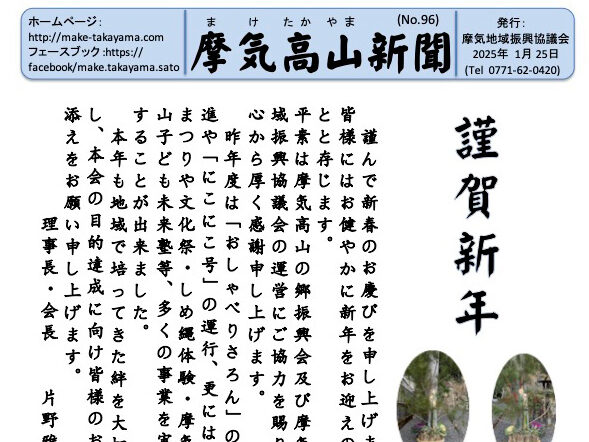 ホームページ:
http://make-takayama.com
フェースブック:https://
facebook/make.takayama.sato
まけたかやま
(No.96)
摩気高山新聞
発行:
摩気地域振興協議会
2025年 1月 25日
(Tel 0771-62-0420)
謹賀新年
謹んで新春のお慶びを申し上げま
皆様にはお健やかに新年をお迎えの
とと存じます。
平素は摩気高山の郷振興会及び摩気
域振興協議会の運営にご協力を賜り
心から厚く感謝申し上げます。
昨年度は「おしゃべりさろん」の
進や「にこにこ号」の運行、更には
まつりや文化祭・しめ縄体験・摩気
山子ども未来塾等、多くの事業を実
することが出来ました。
本年も地域で培ってきた絆を大切
し、本会の目的達成に向け皆様のお
添えをお願い申し上げます。
理事長・会長 片野